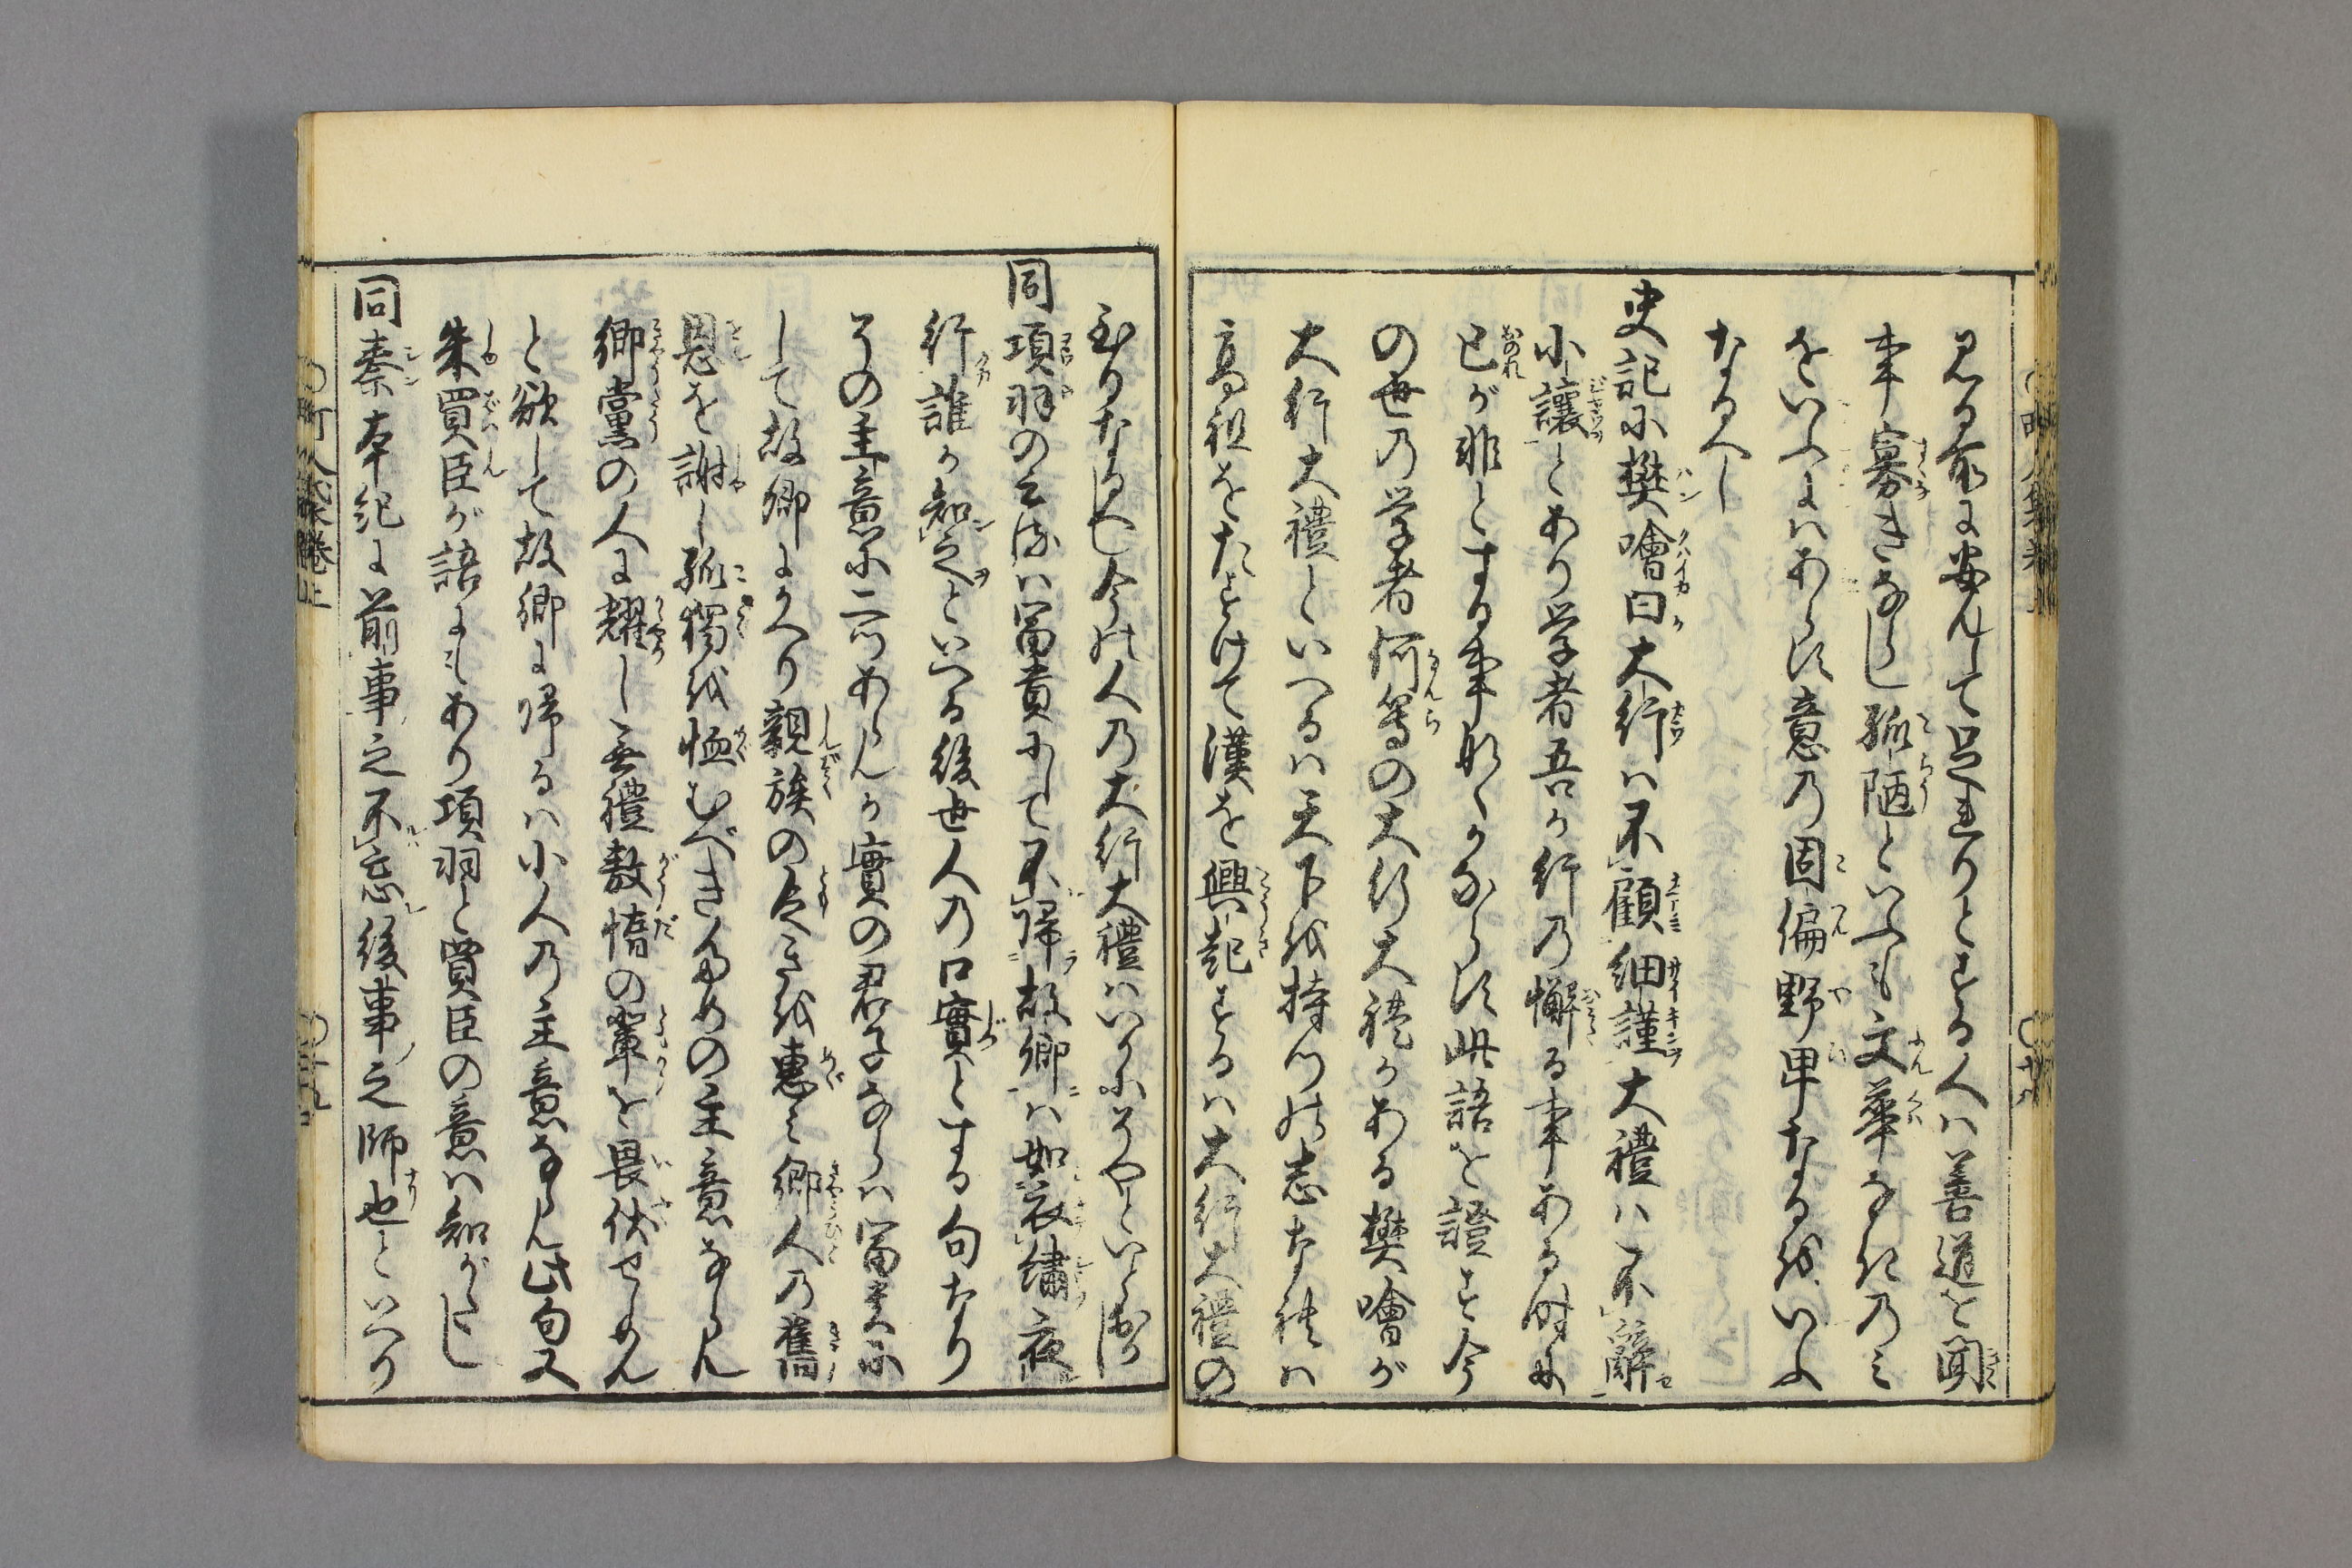 見る所に安んして足れりとする人は善道を聞
事寡きなし孤陋といふも文華なきのミ
をいふにはあらす意の固偏野卑なるをいふ
なるへし
史記に樊噲曰大行は不顧細謹大禮は不辭
小讓とあり学者吾か行の懈る事ある時に
己が非とする事なくかならす此語を證す今
の世の学者何等の大行大禮かある樊噲が
大行大禮といへるは天下を持つの志なれは
高祖をたすけて漢を興起するは大行大禮の
至りなるへし今の人の大行大禮はいかにそやといふ
同項羽の云るは冨貴にして不帰故郷は如衣繡夜
行誰か知之といへる後世人の口實とする句なり
その主意に二つあらんか實の君子ならは冨貴に
して故郷にかへり親族の をを惠ミ郷人の舊
恩を謝し孤獨を恤むべきための主意ならん
郷黨の人に耀し無禮敖惰の輩を畏伏せしめん
と欲して故郷に帰るは小人の主意ならん此句又
朱買臣が語にもあり項羽と買臣の意は知がたし
同秦本紀に前事之不忘後事之師也といへり